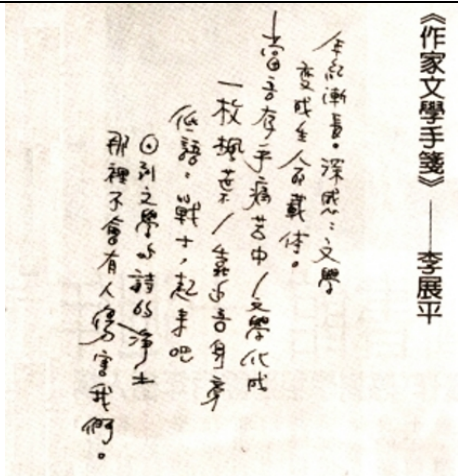 《作家文學手箋》——李展平
年紀漸長。深感:文學
變成人的載体。
當吾存乎痛苦中/文學化成
一枚楓葉/靠近吾身旁
低語:戰士,起來吧
回到文學的詩的淨土
那裡不會有人傷害我們。